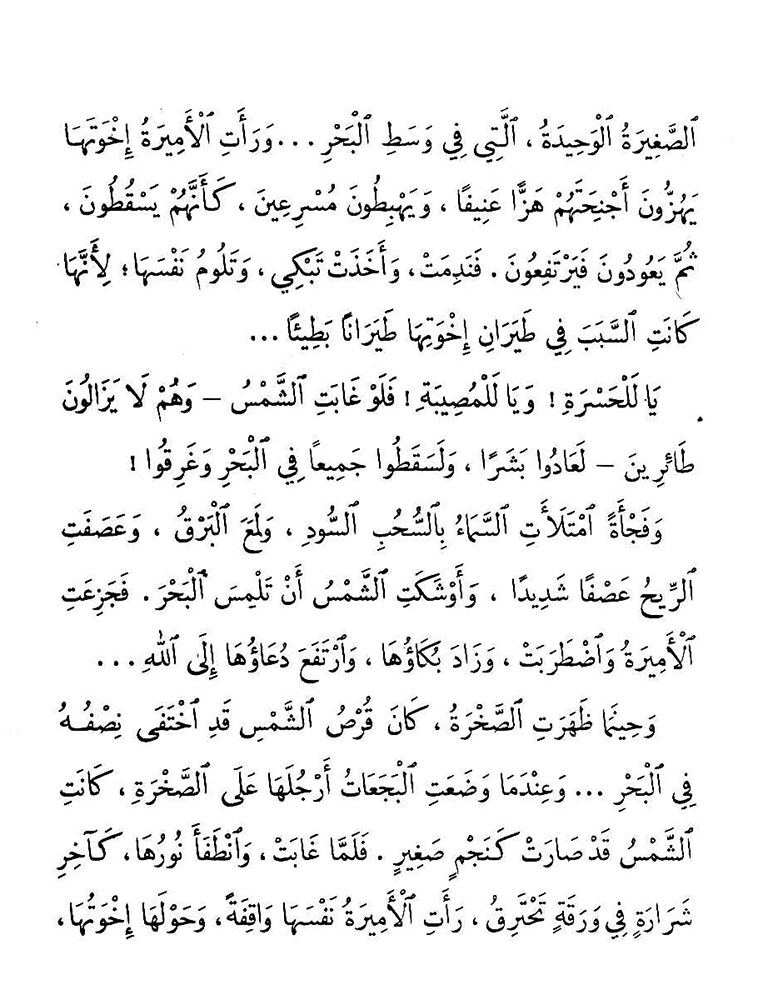 ٱلصَّغِيرَةُ ٱلْوَحِيدَةُ ، ٱلَّتِي فِي وَسَطِ ٱلْبَحْرِ ... وَرَأَتِ ٱلْأَمِيرَةُ إِخْوَتَهَا
يَهُزُّونَ أَجْنِحَتَهُمْ هَزًّا عَنِيفًا ، وَيَهْبِطُونَ مُسْرِعِينَ ، كَأَنَّهُمْ يَسْقُطُونَ ،
ثُمَّ يَعُودُونَ فَيَرْتَفِعُونَ . فَنَدِمَتْ، وَأَخَذَتْ تَبْكِي ، وَتَلُومُ نَفْسَهَا ؛ لِأَنَّهَا
كَانَتِ ٱلسَّبَبَ فِي طَيَرَانِ إِخْوَتِهَا طَيَرَانًا بَطِيئًا ...
يَا لَلْحَسْرَةِ ! وَيَا لَلْمُصِيبَةِ ! فَلَوْ غَابَتِ ٱلشَّمْسُ – وَهُمْ لَا يَزَالُونَ
طَائِرِينَ – لَعَادُوا بَشَرًا ، وَلَسَقَطُوا جَمِيعاً فِي ٱلْبَحْرِ وَغَرِقُوا !
وَفَجْأَةً ٱمْتَلَأَتِ ٱلسَّمَاءُ بِٱلسُّحُبِ ٱلسُّودِ ، وَلَمَعَ ٱلْبَرْقُ ، وَعَصَفَتِ
ٱلرِّيحُ عَصْفًا شَدِيدًا ، وَأَوْشَكَتِ ٱلشَّمْسُ أَنْ تَلْمِسَ ٱلْبَحْرَ . فَجَزِعَتِ
ٱلْأَمِيرَةُ وَٱضْطَرَبَتْ ، وَزَادَ بُكَاؤُهَا ، وَٱرْتَفَعَ دُعَاؤُهَا إِلَى ٱللهِ ...
وَحِينَمَا ظَهَرَتِ ٱلصَّخْرَةُ ، كَانَ قُرْصُ ٱلشَّمْسِ قَدِ ٱخْتَفَى نِصْفُهُ
فِي ٱلْبَحْرِ ... وَعِنْدَمَا وَضَعَتِ ٱلْبَجَعَاتُ أَرْجُلَهَا عَلَى ٱلصَّخْرَةِ ، كَانَتِ
ٱلشَّمْسُ قَدْ صَارَتْ كَنَجْمٍ صَغِيرٍ . فَلَمَّا غَابَتْ ، وَٱنْطَفَأَ نُورُهَا، كَآخِرِ
شَرَارَةٍ فِي وَرَقَةٍ تَحْتَرِقُ ، رَأَتِ ٱلْأَمِيرَةُ نَفْسَهَا وَاقِفَةً، وَحَوْلَهَا إِخْوَتُهَا،